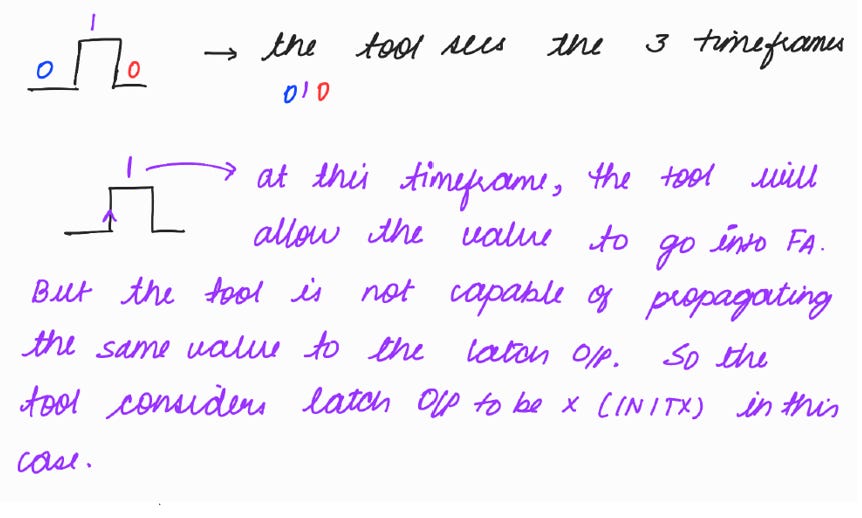 1
0 0
→ the tool sees the 3 timeframes
0 1 0
1
at this timeframe, the tool will
allow the value to go into FA.
But the tool is not capable of propagating
the same value to the latch O/P. So the
tool considers latch O/P to be x (INITX) in this
case.